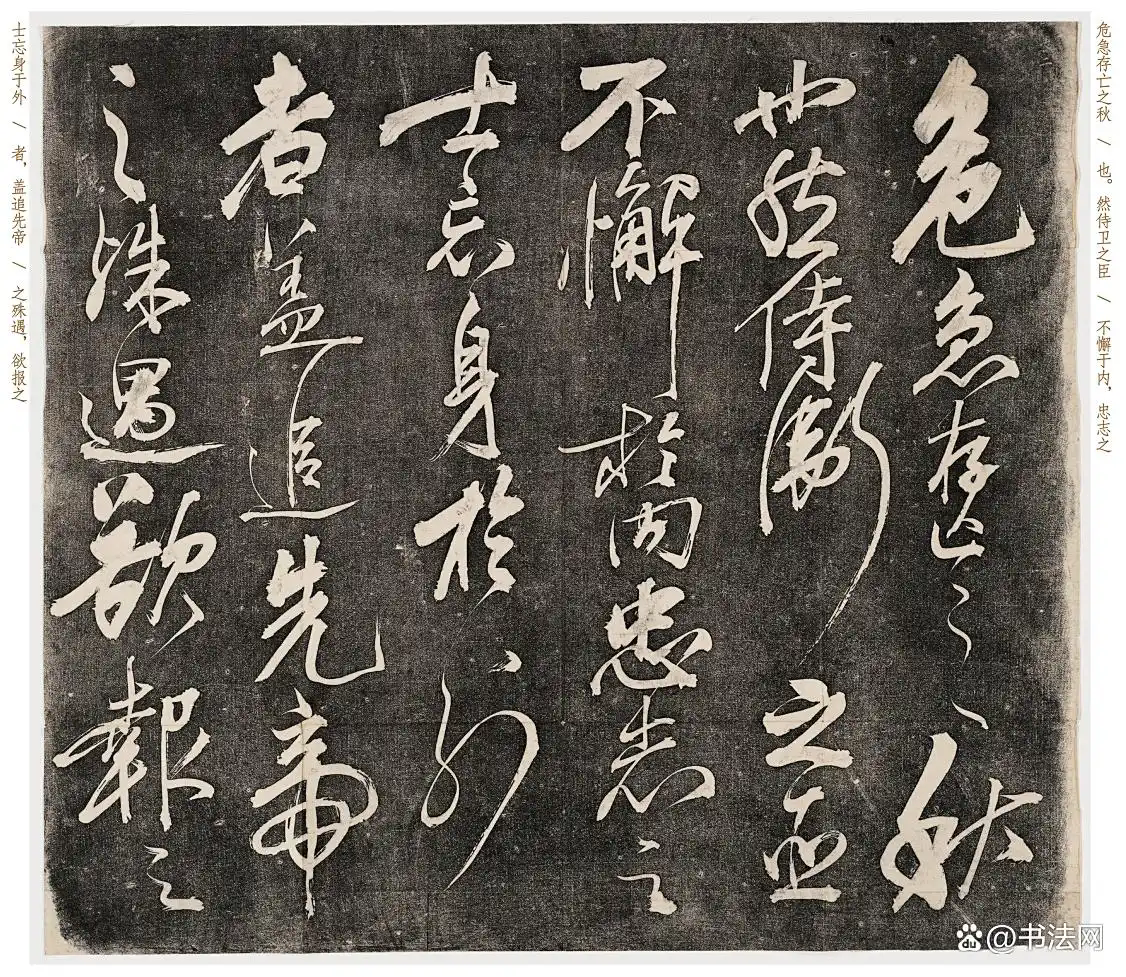 危急存亡之秋 / 也。然侍卫之臣 / 不懈于内，忠志之
危急存亡之秋
也然侍衛之臣
不懈於内忠志之
士忘身於外
者盖追先帝
之殊遇欲報之
士忘身于外 / 者，盖追先帝 / 之殊遇，欲报之
Bai du @书法网